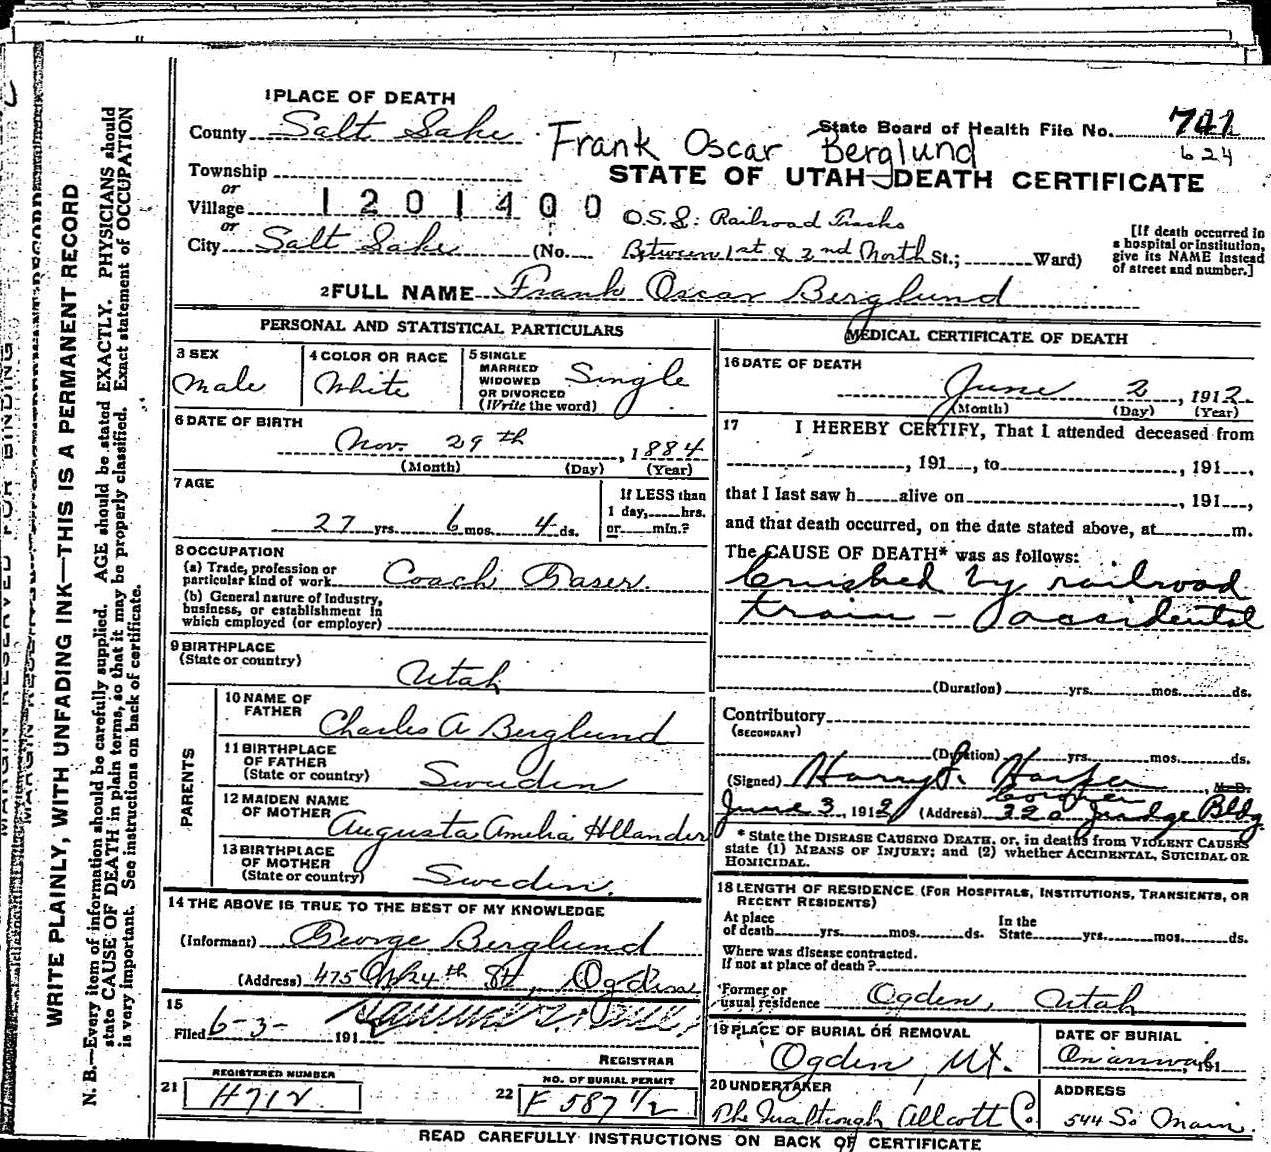 1 PLACE OF DEATH
County Salt Lake
State Board of Health File No. 741
624
Frank Oscar Berglund
Township
STATE OF UTAH—DEATH CERTIFICATE
or
Village
1201400
O.S.L. Railroad Tracks
or
City Salt Lake (No. Between 1st & 2nd North St.; Ward)
[If death occurred in
a hospital or institution,
give its NAME instead
of street and number.]
2 FULL NAME Frank Oscar Berglund
PERSONAL AND STATISTICAL PARTICULARS
3 SEX
Male
4 COLOR OR RACE
White
5 SINGLE
MARRIED
WIDOWED
OR DIVORCED
(Write the word)
Single
6 DATE OF BIRTH
Nov. 29th, 1884
(Month) (Day) (Year)
7 AGE
27 yrs. 6 mos. 4 ds.
If LESS than
1 day, hrs.
or min.?
8 OCCUPATION
(a) Trade, profession or
particular kind of work Coach
(b) General nature of Industry,
business, or establishment in
which employed (or employer)
9 BIRTHPLACE
(State or country)
Utah
PARENTS
10 NAME OF
FATHER
Charles A Berglund
11 BIRTHPLACE
OF FATHER
(State or country)
Sweden
12 MAIDEN NAME
OF MOTHER
Augusta Amelia Hollander
13 BIRTHPLACE
OF MOTHER
(State or country)
Sweden.
14 THE ABOVE IS TRUE TO THE BEST OF MY KNOWLEDGE
(Informant) George Berglund
(Address) 475 24th St, Ogden
15
Filed 6-3- 191
REGISTRAR
21
REGISTERED NUMBER
H712
22
NO. OF BURIAL PERMIT
F 587 1/2
MEDICAL CERTIFICATE OF DEATH
16 DATE OF DEATH
June 2, 1912.
(Month) (Day) (Year)
17 I HEREBY CERTIFY, That I attended deceased from
, 191 , to , 191 ,
that I last saw h alive on , 191 ,
and that death occurred, on the date stated above, at m.
The CAUSE OF DEATH* was as follows:
Crushed by railroad
train - accidental
(Duration) yrs. mos. ds.
Contributory
(SECONDARY)
(Duration) yrs. mos. ds.
(Signed) Harry S. Harper, M. D.
Coroner
June 3, 1912 (Address) 220 Judge Bldg
* State the DISEASE CAUSING DEATH, or, in deaths from VIOLENT CAUSES
state (1) MEANS OF INJURY; and (2) whether ACCIDENTAL, SUICIDAL OR
HOMICIDAL.
18 LENGTH OF RESIDENCE (FOR HOSPITALS, INSTITUTIONS, TRANSIENTS, OR
RECENT RESIDENTS)
At place
of death yrs. mos. ds.
In the
State yrs. mos. ds.
Where was disease contracted.
If not at place of death?
Former or
usual residence Ogden, Utah
19 PLACE OF BURIAL OR REMOVAL
Ogden, Ut.
DATE OF BURIAL
On arrival, 191
20 UNDERTAKER
The Allcott Co.
ADDRESS
544 So Main.
READ CAREFULLY INSTRUCTIONS ON BACK OF CERTIFICATE
MARGIN RESERVED FOR BINDING
WRITE PLAINLY, WITH UNFADING INK—THIS IS A PERMANENT RECORD
N. B.—Every item of information should be carefully supplied. AGE should be stated EXACTLY. PHYSICIANS should
state CAUSE OF DEATH in plain terms, so that it may be properly classified. Exact statement of OCCUPATION
is very important. See instructions on back of certificate.